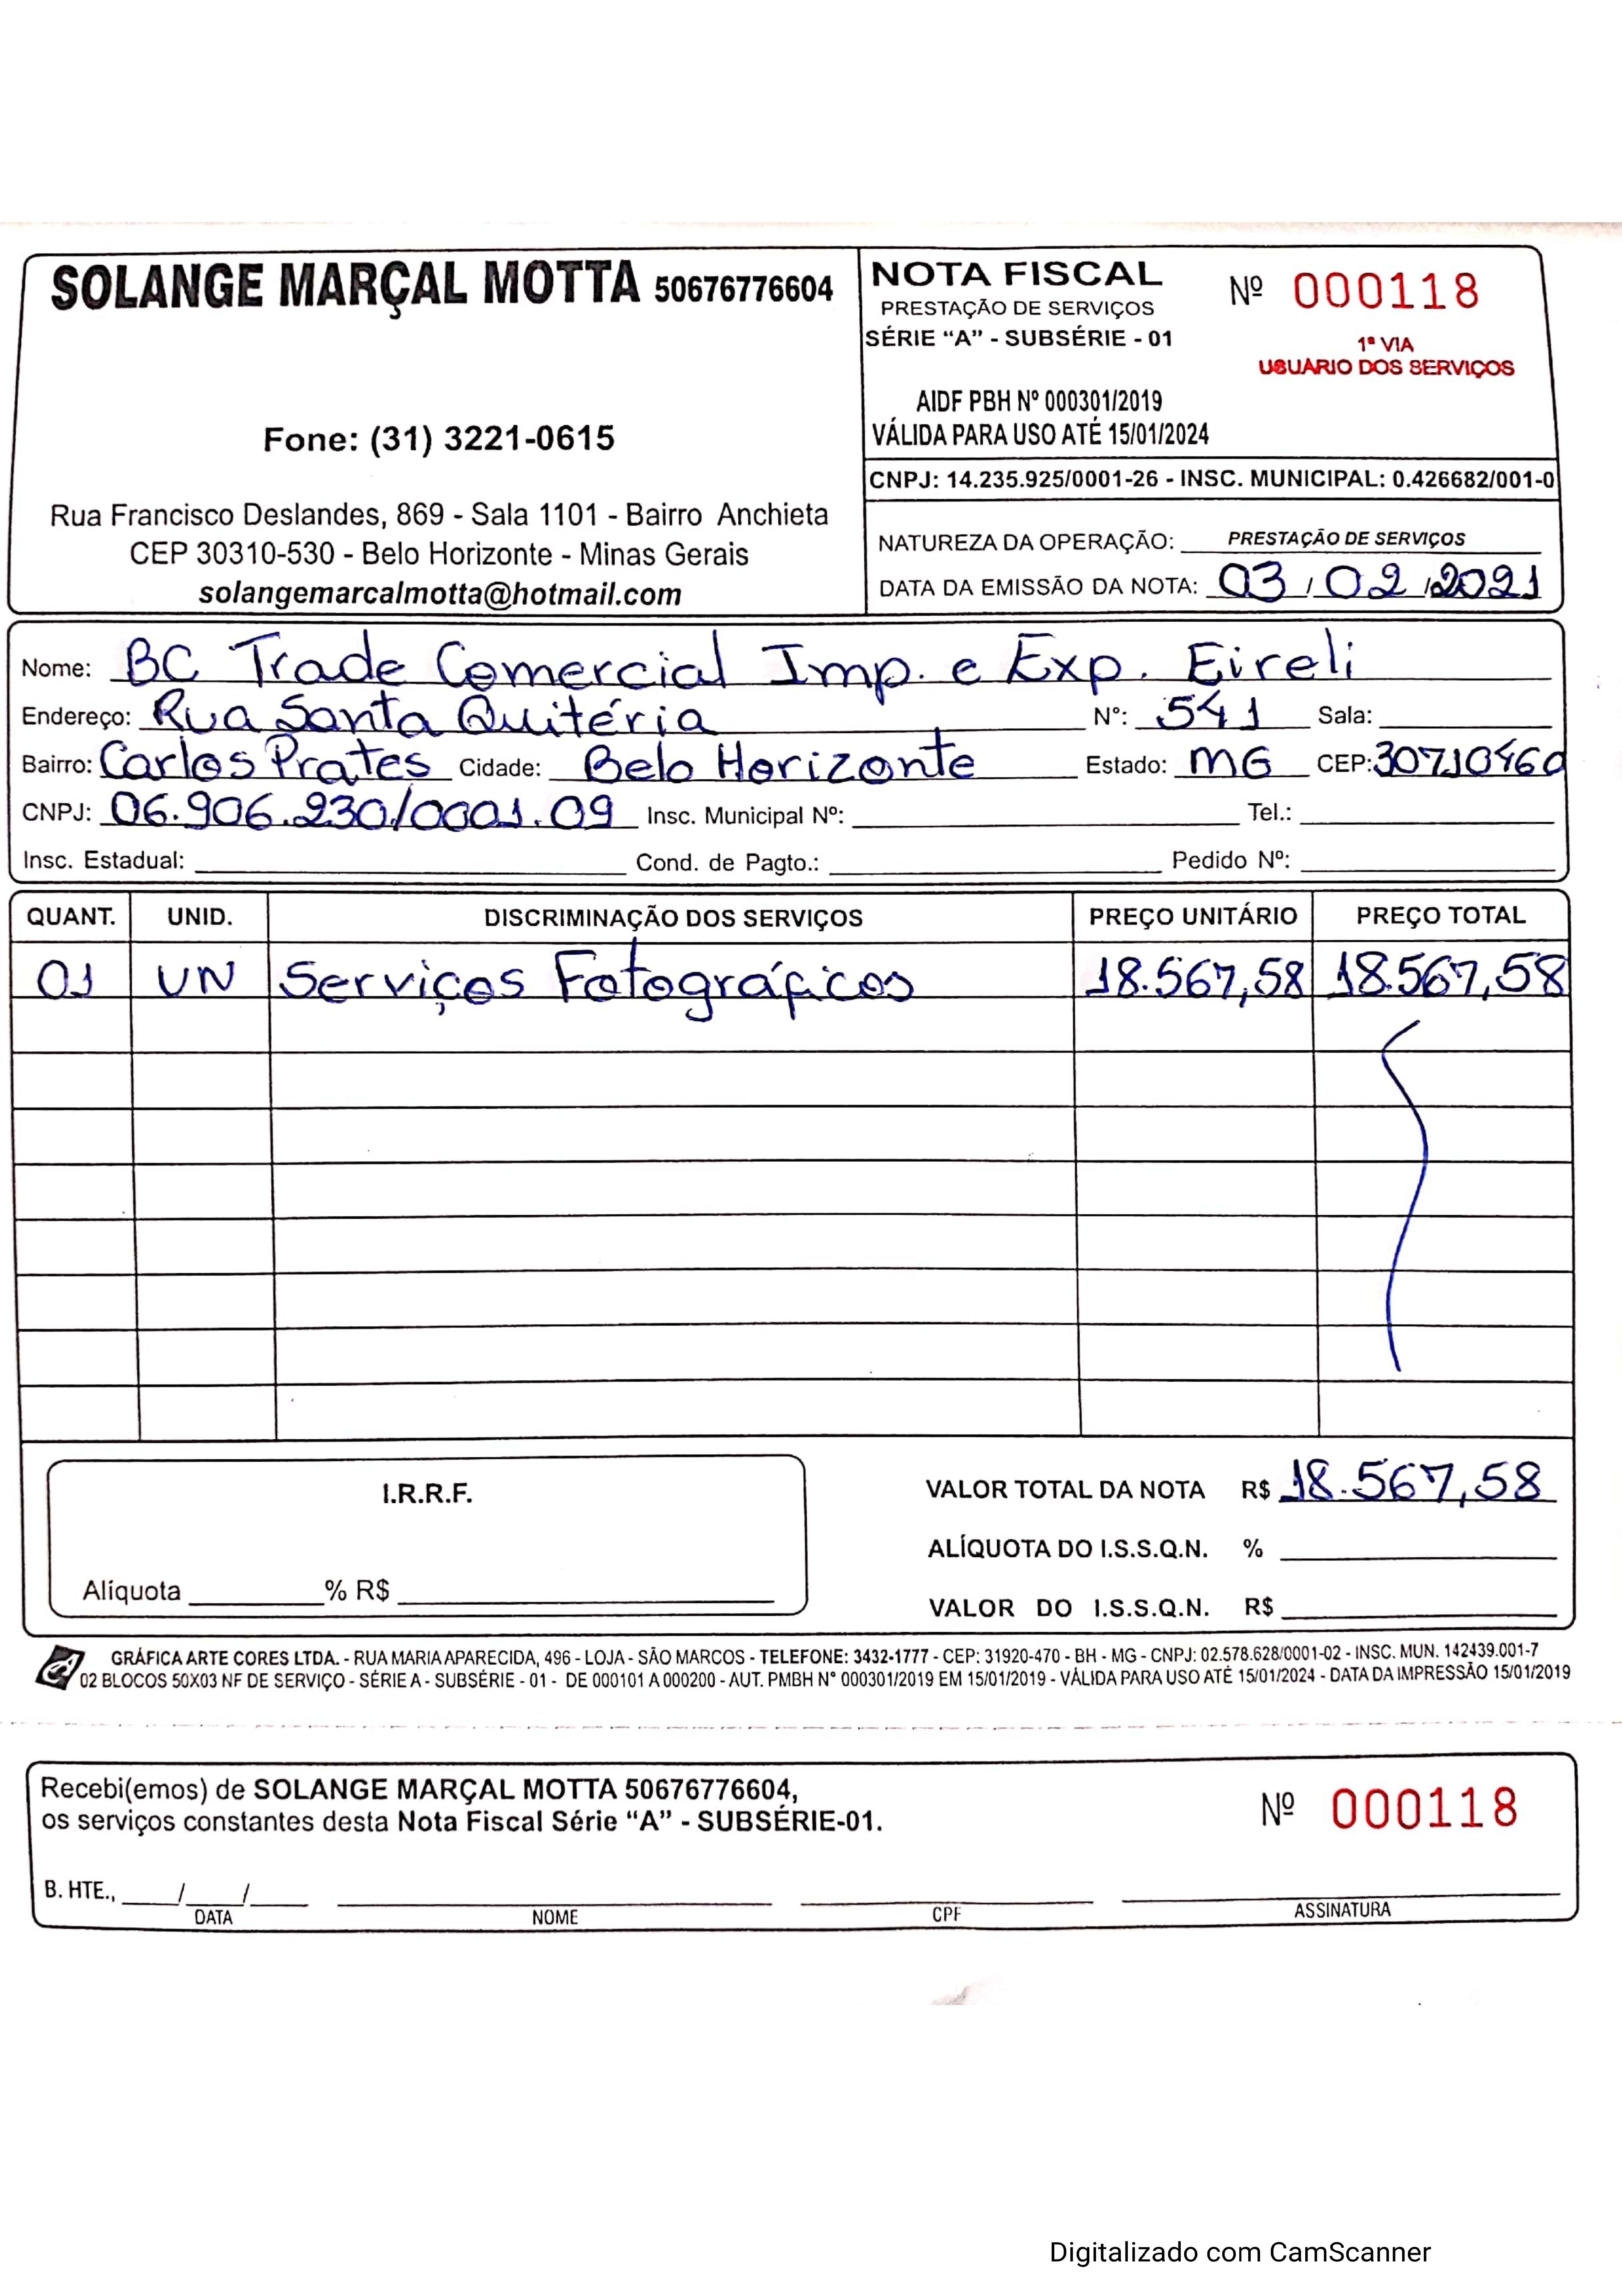 SOLANGE MARÇAL MOTTA 50676776604
Fone: (31) 3221-0615
Rua Francisco Deslandes, 869 - Sala 1101 - Bairro Anchieta
CEP 30310-530 - Belo Horizonte - Minas Gerais
solangemarcalmotta@hotmail.com
NOTA FISCAL
PRESTAÇÃO DE SERVIÇOS
SÉRIE “A” - SUBSÉRIE - 01
Nº 000118
1ª VIA
USUÁRIO DOS SERVIÇOS
AIDF PBH Nº 000301/2019
VÁLIDA PARA USO ATÉ 15/01/2024
CNPJ: 14.235.925/0001-26 - INSC. MUNICIPAL: 0.426682/001-0
NATUREZA DA OPERAÇÃO: PRESTAÇÃO DE SERVIÇOS
DATA DA EMISSÃO DA NOTA: 03/02/2021
Nome: BC Trade Comercial Imp. e Exp. Eireli
Endereço: Rua Santa Quitéria Nº: 541 Sala:
Bairro: Carlos Prates Cidade: Belo Horizonte Estado: MG CEP: 30710460
CNPJ: 06.906.230/0001.09 Insc. Municipal Nº: Tel.:
Insc. Estadual: Cond. de Pagto.: Pedido Nº:
QUANT. UNID. DISCRIMINAÇÃO DOS SERVIÇOS PREÇO UNITÁRIO PREÇO TOTAL
01 UN Serviços Fotográficos 18.567,58 18.567,58
I.R.R.F.
Alíquota % R$
VALOR TOTAL DA NOTA R$ 18.567,58
ALÍQUOTA DO I.S.S.Q.N. %
VALOR DO I.S.S.Q.N. R$
GRÁFICA ARTE CORES LTDA. - RUA MARIA APARECIDA, 496 - LOJA - SÃO MARCOS - TELEFONE: 3432-1777 - CEP: 31920-470 - BH - MG - CNPJ: 02.578.628/0001-02 - INSC. MUN. 142439.001-7
02 BLOCOS 50X03 NF DE SERVIÇO - SÉRIE A - SUBSÉRIE - 01 - DE 000101 A 000200 - AUT. PMBH Nº 000301/2019 EM 15/01/2019 - VÁLIDA PARA USO ATÉ 15/01/2024 - DATA DA IMPRESSÃO 15/01/2019
Recebi(emos) de SOLANGE MARÇAL MOTTA 50676776604,
os serviços constantes desta Nota Fiscal Série “A” - SUBSÉRIE-01.
Nº 000118
B. HTE., / /
DATA NOME CPF ASSINATURA
Digitalizado com CamScanner